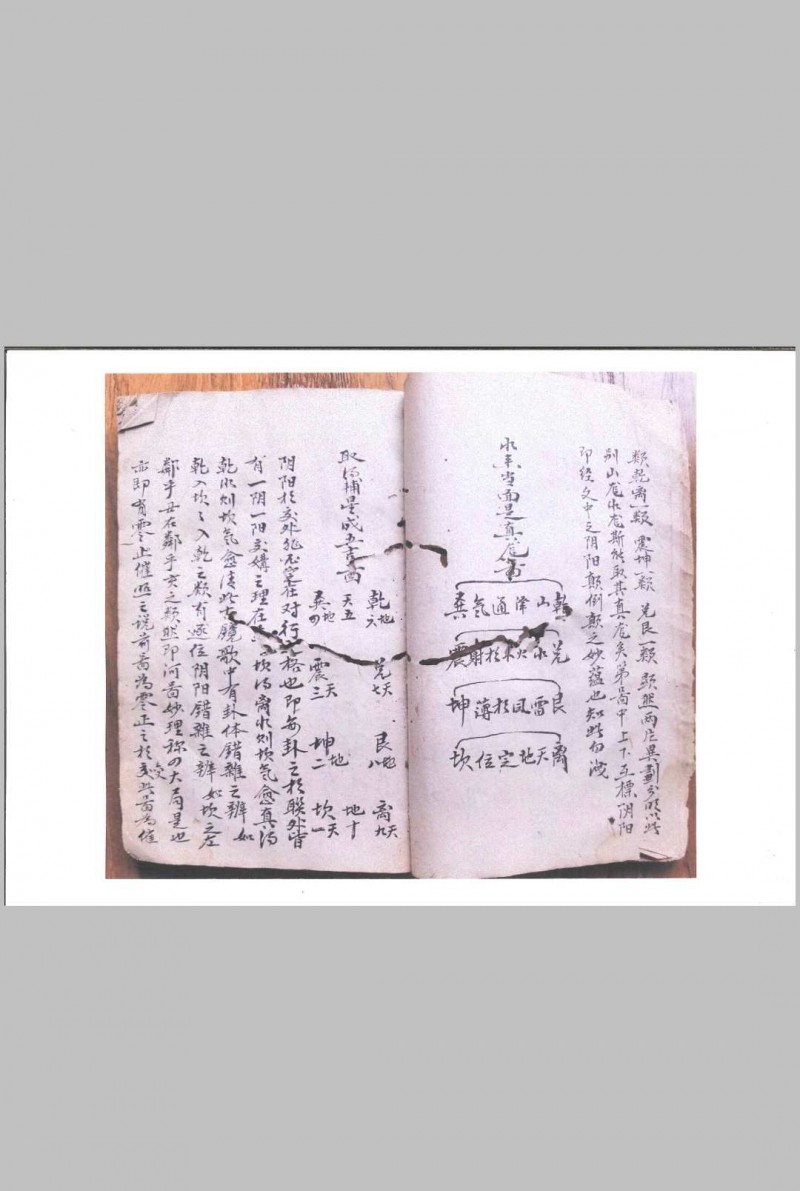 类乾离一类 震坤一类 兑艮一类 类然两片 以此
别山龙水龙斯能取其真龙矣第图中上下互标阴阳
即经文中之阴阳颠倒颠之妙蕴也知此勿泄
水来当面是真龙图
乾山泽通气巽
兑水火不相射震
艮雷风相薄坤
离天地定位坎
取得补星成五吉图
乾地六 兑天七 艮地八 离天九
天五 地十
巽地四 震天三 坤地二 坎天一
阴阳相交外非尽在对 行 格也即每卦之相联处皆
有一阴一阳交媾之理在 坎得离水则坎气愈真得
乾水则坎气愈清此古镜歌中有卦体错杂之辨如
乾入坎坎入乾之类有逐位阴阳错杂之辨如坎之左
邻乎丑右邻乎亥之类然即河图妙理称四大局是也
而即有零止催照之说前图为零正之相交此图为催